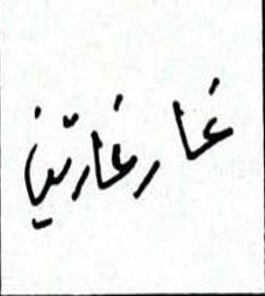 غارغارتين